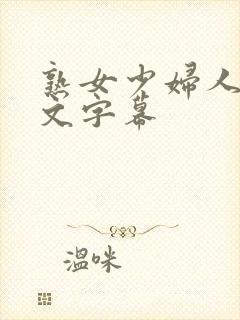 熟女少妇人
文字幕
温咪